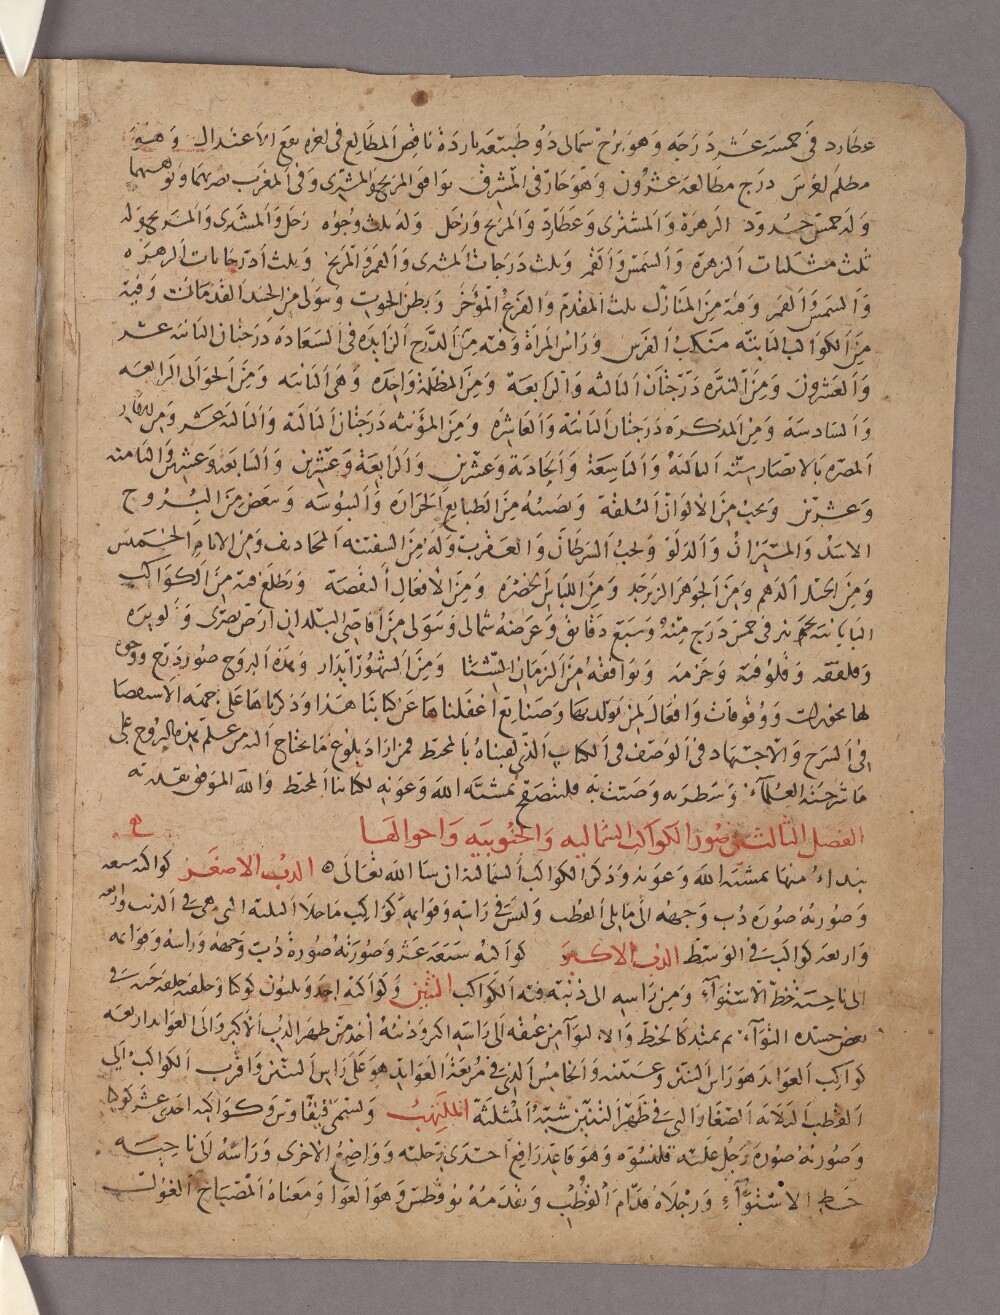 عطارد في خمسة عشر درجه وهو برج شمالي ذو طبيعه بارده ناقص المطالع في اخره يقع الاعتدال وهو
مظلم درج مطالعه عشرون وهو حار في المشرق يوافق المريخ والمشتري وفي المغرب
وله خمس حدود الزهرة والمشتري وعطارد والمريخ وزحل وله ثلث وجوه زحل والمشتري والمريخ وله
ثلث مثلثات الزهرة والشمس والقمر وثلث درجات المشتري والقمر والمريخ وثلث ادرجانات الزهره
والشمس والقمر وفيه من المنازل ثلث المقدم والفرغ المؤخر وبطن الحوت وفيه
من الكواكب الثابته منكب الفرس وراس المراة وفيه من الدرج الزايده في السعاده درجتان الثانيه عشر
والعشرون ومن النيره درجتان الثالثه والرابعة ومن المظلمة واحده وهي الثانيه ومن الخوالي الرابعه
والسادسه ومن المذكره درجتان الثانيه والعاشره ومن المؤنثه درجتان الثالثه والثالثه عشر ومن
المضره بالابصار الثالثة والتاسعة والحادية وعشرين والرابعة وعشرين والسابعه وعشرين والثامنه
وعشرين ويحب من الالوان ونصيبه من الطبايع الحراره واليبوسه ويبغض من البروج
الاسد والميزان والدلو ويحب السرطان والعقرب وله من السفينه المجاديف ومن الايام الخميس
ومن الدهم ومن الجوهر الزبرجد ومن اللباس الخضره ومن الافعال النقصة ويطلع فيه من الكواكب
في خمس درج منه وسبع دقائق وعرضه شمالي من اقاصي البلدان ارض
ويوافقه من الزمان الشتا ومن الشهور اذار وهذه البروج صور درج ووجوه
لها ووقوفات وافعال لمن تولد بها وصنايع اغفلناها عن كتابنا هذا وذكرناها على جهة الاستقصا
في الشرح والاجتهاد في الوصف في الكتاب الذي لقبناه بالمحيط فمن اراد بلوغ ما يحتاج اليه من علم هذه البروج على
ما شرحته العلماء وسطرته وصنت به فليتصفح بمشية الله وعونه لكتابنا المحيط والله الموفق
الفصل الثالث في صور الكواكب الشماليه والجنوبيه واحوالها
نبداء منها بمشية الله وعونه وذكر الكواكب الشمالية ان شا الله تعالى الدب الاصغر كواكبه سبعه
وصورته صورة دب وجهه الى ما يلي القطب وليس في راسه وقوايمه كواكب ما خلا الثلثه التي هي في الذنب
واربعه كواكب في الوسط الدب الاكبر كواكبه سبعة عشر وصورته صورة دب وجهه وراسه وقوايمه
الى ناحية خط الاستواء ومن راسه الى ذنبه فيه الكواكب التنين وكواكبه احد وثلثون كوكبا وحلقته حلقة حية في
بعض جسده التواء ثم يمتد كالخط والالتوا من عنقه الى راسه اكثر وذنبه اخذ من ظهر الدب الاكبر والى العوايد اربعه
كواكب العوايد هو راس التنين وعينيه والخامس الذي في مربعة العوايد هو على راس التنين واقرب الكواكب الى
القطب الثلاثة الصغار التي في ظهر التنين شبه المثلثة الملتهب ويسمى قيقاوس وكواكبه احدى عشر كوكبا
وصورته صورة رجل عليه قلنسوه وهو قاعد رافع احدى رجليه وواضع الاخرى وراسه الى ناحيه
خط الاستواء ورجلاه قدام القطب ويقدمه بووطس وهو العوا ومعناه المصباح الغول